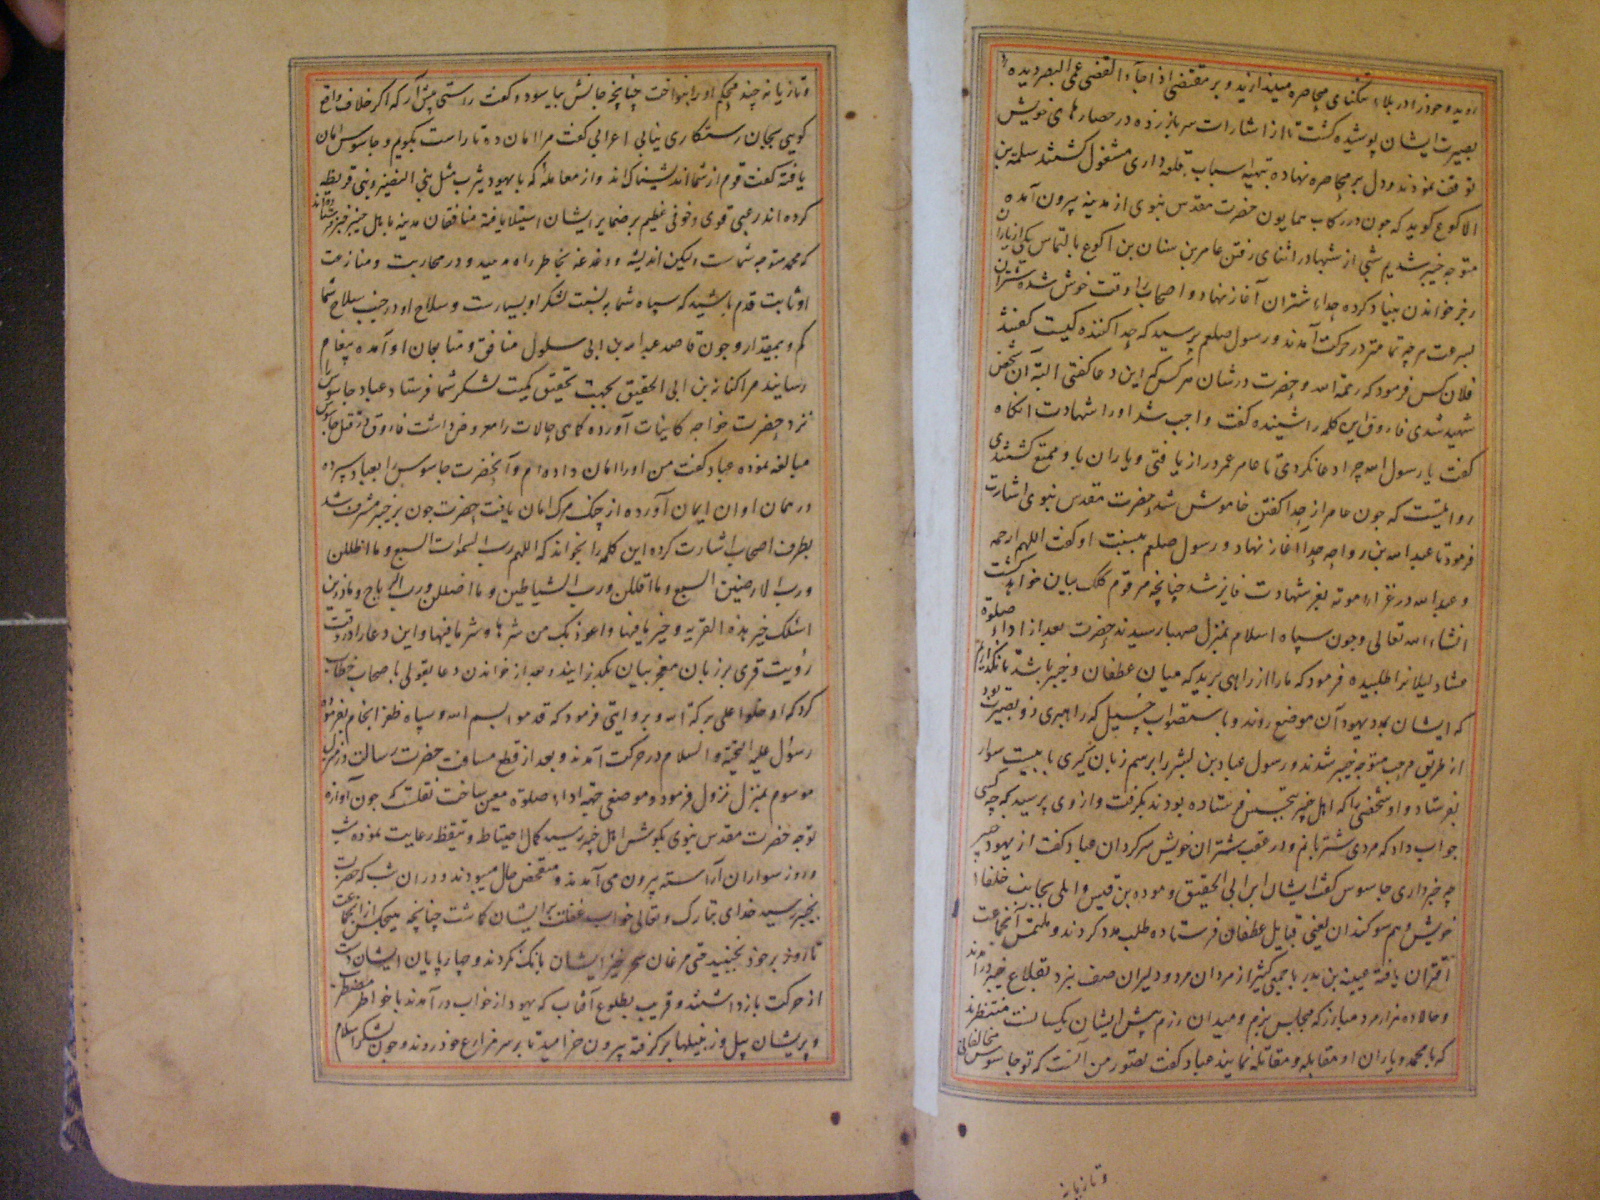 دیده و خود را در بلاء تنگنای محاصره میندازید و بر مقتضی اذا جاء القضی عمی البصر دیده
بصیرت ایشان پوشیده گشت تا از اشارات سر باز زده در حصارهای خویش
توقف نمودند و دل بر محاصره نهاده بتهیه اسباب قلعه داری مشغول گشتند سلمة بن
الاکوع کوید که چون در رکاب همایون حضرت مقدس نبوی از مدینه بیرون آمده
متوجه خیبر شدیم شبی از شبها در اثنای رفتن عامر بن سنان بن اکوع بالتماس یکی از یاران
رجز خواندن بنیاد کرده حداء شتران آغاز نهاد و اصحاب را وقت خوش شده شتران
بسرعت هر چه تمامتر در حرکت آمدند و رسول صلعم پرسید که حدا کننده کیست کفتند
فلان کس فرمود که رحمة الله و حضرت در شان هر کس که این دعا کفتی البته آن شخص
شهید شدی فاروق این کلمه را شنیده کفت واجب شد او را شهادت انکاه
کفت یا رسول الله چرا دعا نکردی تا عامر عمر دراز یافتی و یاران باو ممتع کشتندی
روایتست که چون عامر از حدا کفتن خاموش شد حضرت مقدس نبوی اشارت
فرمود تا عبد الله بن رواحه حدا اغاز نهاد و رسول صلعم بنسبت او کفت اللهم ارحمه
و عبد الله در غزاء موته بعز شهادت فایز شد چنانچه مرقوم کلک بیان خواهد کشت
انشاء الله تعالی و چون سپاه اسلام بمنزل صهبا رسیدند حضرت بعد از اداء صلوة
عشاء دلیلانرا طلبیده فرمود که ما را از راهی برید که میان غطفان و خیبر باشد تا نگذاریم
که ایشان بمدد یهود آن موضع روند و باستصواب حسیل که راهبری ذو بصیرت بود
از طریق مرحب متوجه خیبر شدند و رسول عباد بن بشر را برسم زبان کیری با بیست سوار
بفرستاد و او شخصی را که اهل خیبر بتجسس فرستاده بودند بکرفت و از وی پرسید که چه کسی
جواب داد که مردی شتربانم و در عقب شتران خویش سرکردان عباد کفت از یهود خیبر
چه خبر داری جاسوس کفت ایشان ابن ابی الحقیق و هوده بن قیس وایلی بجانب خلفاء
خویش و هم سوکندان یعنی قبایل غطفان فرستاده طلب مدد کردند و ملتمس آنجماعت
اقتران یافته عیینه بن بدر با جمعی کثیر از مردان مرد و دلیران صف نبرد بقلاع خیبر درآمدند
و حالا ده هزار مرد مبارز که مجلس بزم و میدان رزم پیش ایشان یکسانست منتظرند
که با محمد و یاران او مقابله و مقاتله نمایند عباد کفت تصور من آنست که تو جاسوس مخالفانی
و تازیانه
و تازیانه چند محکم او را بنواخت چنانچه جانش بیاسود و کفت راستی پیش آر که اکر خلاف واقع
کویی بجان رستکاری نیابی اعرابی کفت مرا امان ده تا راست بکویم و جاسوس امان
یافته کفت قوم از شما اندیشناک‌اند و از معامله که با یهود یثرب مثل بنی النضیر و بنی قریظه
کرده‌اند رعبی قوی و خوفی عظیم بر ضمایر ایشان استیلا یافته منافقان مدینه باهل خیبر خبر فرستاده‌اند
که محمد متوجه شماست ولیکن اندیشه و دغدغه بخاطر راه مدهید و در محاربت و منازعت
او ثابت قدم باشید که سپاه شما به نسبت لشکر او بسیارست و سلاح او در جنب سلاح شما
کم و بیمقدار و چون قاصد عبد الله بن ابی سلول منافق و متابعان او آمده پیغام
رسانیدند مرا کنانه بن ابی الحقیق بجهت تحقیق کمیت لشکر شما فرستاد عباد جاسوس را
نزد حضرت خواجه کاینات آورده کماهی حالات را معروض داشت فاروق در قتل جاسوس
مبالغه نموده عباد کفت من او را امان داده‌ام و آنحضرت جاسوس را بعباد سپرده
در همان اوان ایمان آورده از چنک مرک امان یافت حضرت چون بر خیبر مشرف شد
بطرف اصحاب اشارت کرده این کلمه را بخواند که اللهم رب السموات السبع و ما اظللن
و رب الارضین السبع و ما اقللن و رب الشیاطین و ما اضللن و رب الریاح و ما ذرین
اسئلک خیر هذه القریه و خیر ما فیها و اعوذ بک من شرها و شر ما فیها و این دعا را در وقت
رؤیت قری بر زبان معجز بیان بکذرانید و بعد از خواندن دعا بقولی باصحاب خطاب
کرد که ادخلوا علی برکة الله و بروایتی فرمود که قدموا بسم الله و سپاه ظفر انجام بفرموده
رسول علیه التحیة و السلام در حرکت آمدند و بعد از قطع مسافت حضرت رسالت در منزل
موسوم بمنزل نزول فرمود و موضعی جهة اداء صلوة معین ساخت نقلست که چون آوازه
توجه حضرت مقدس نبوی بکوش اهل خیبر رسید کمال احتیاط و تیقظ رعایت نموده شب
و روز سواران آراسته بیرون می‌آمدند و متفحص حال میبودند و در ان شب که حضرت
بخیبر رسید خدای تبارک و تعالی خواب غفلت بر ایشان کماشت چنانچه هیچکس از آنجماعت
تا روز بر خود نجنبید حتی مرغان سحر خیز ایشان بانک نکردند و چارپایان ایشان دست
از حرکت بازداشتند و قریب بطلوع آفتاب که یهود از خواب در آمدند با خواطر مضطر
و پریشان بیل و زنبیلها بر کرفته بیرون خرامید تا بر سر مزارع خود روند و چون لشکر اسلام